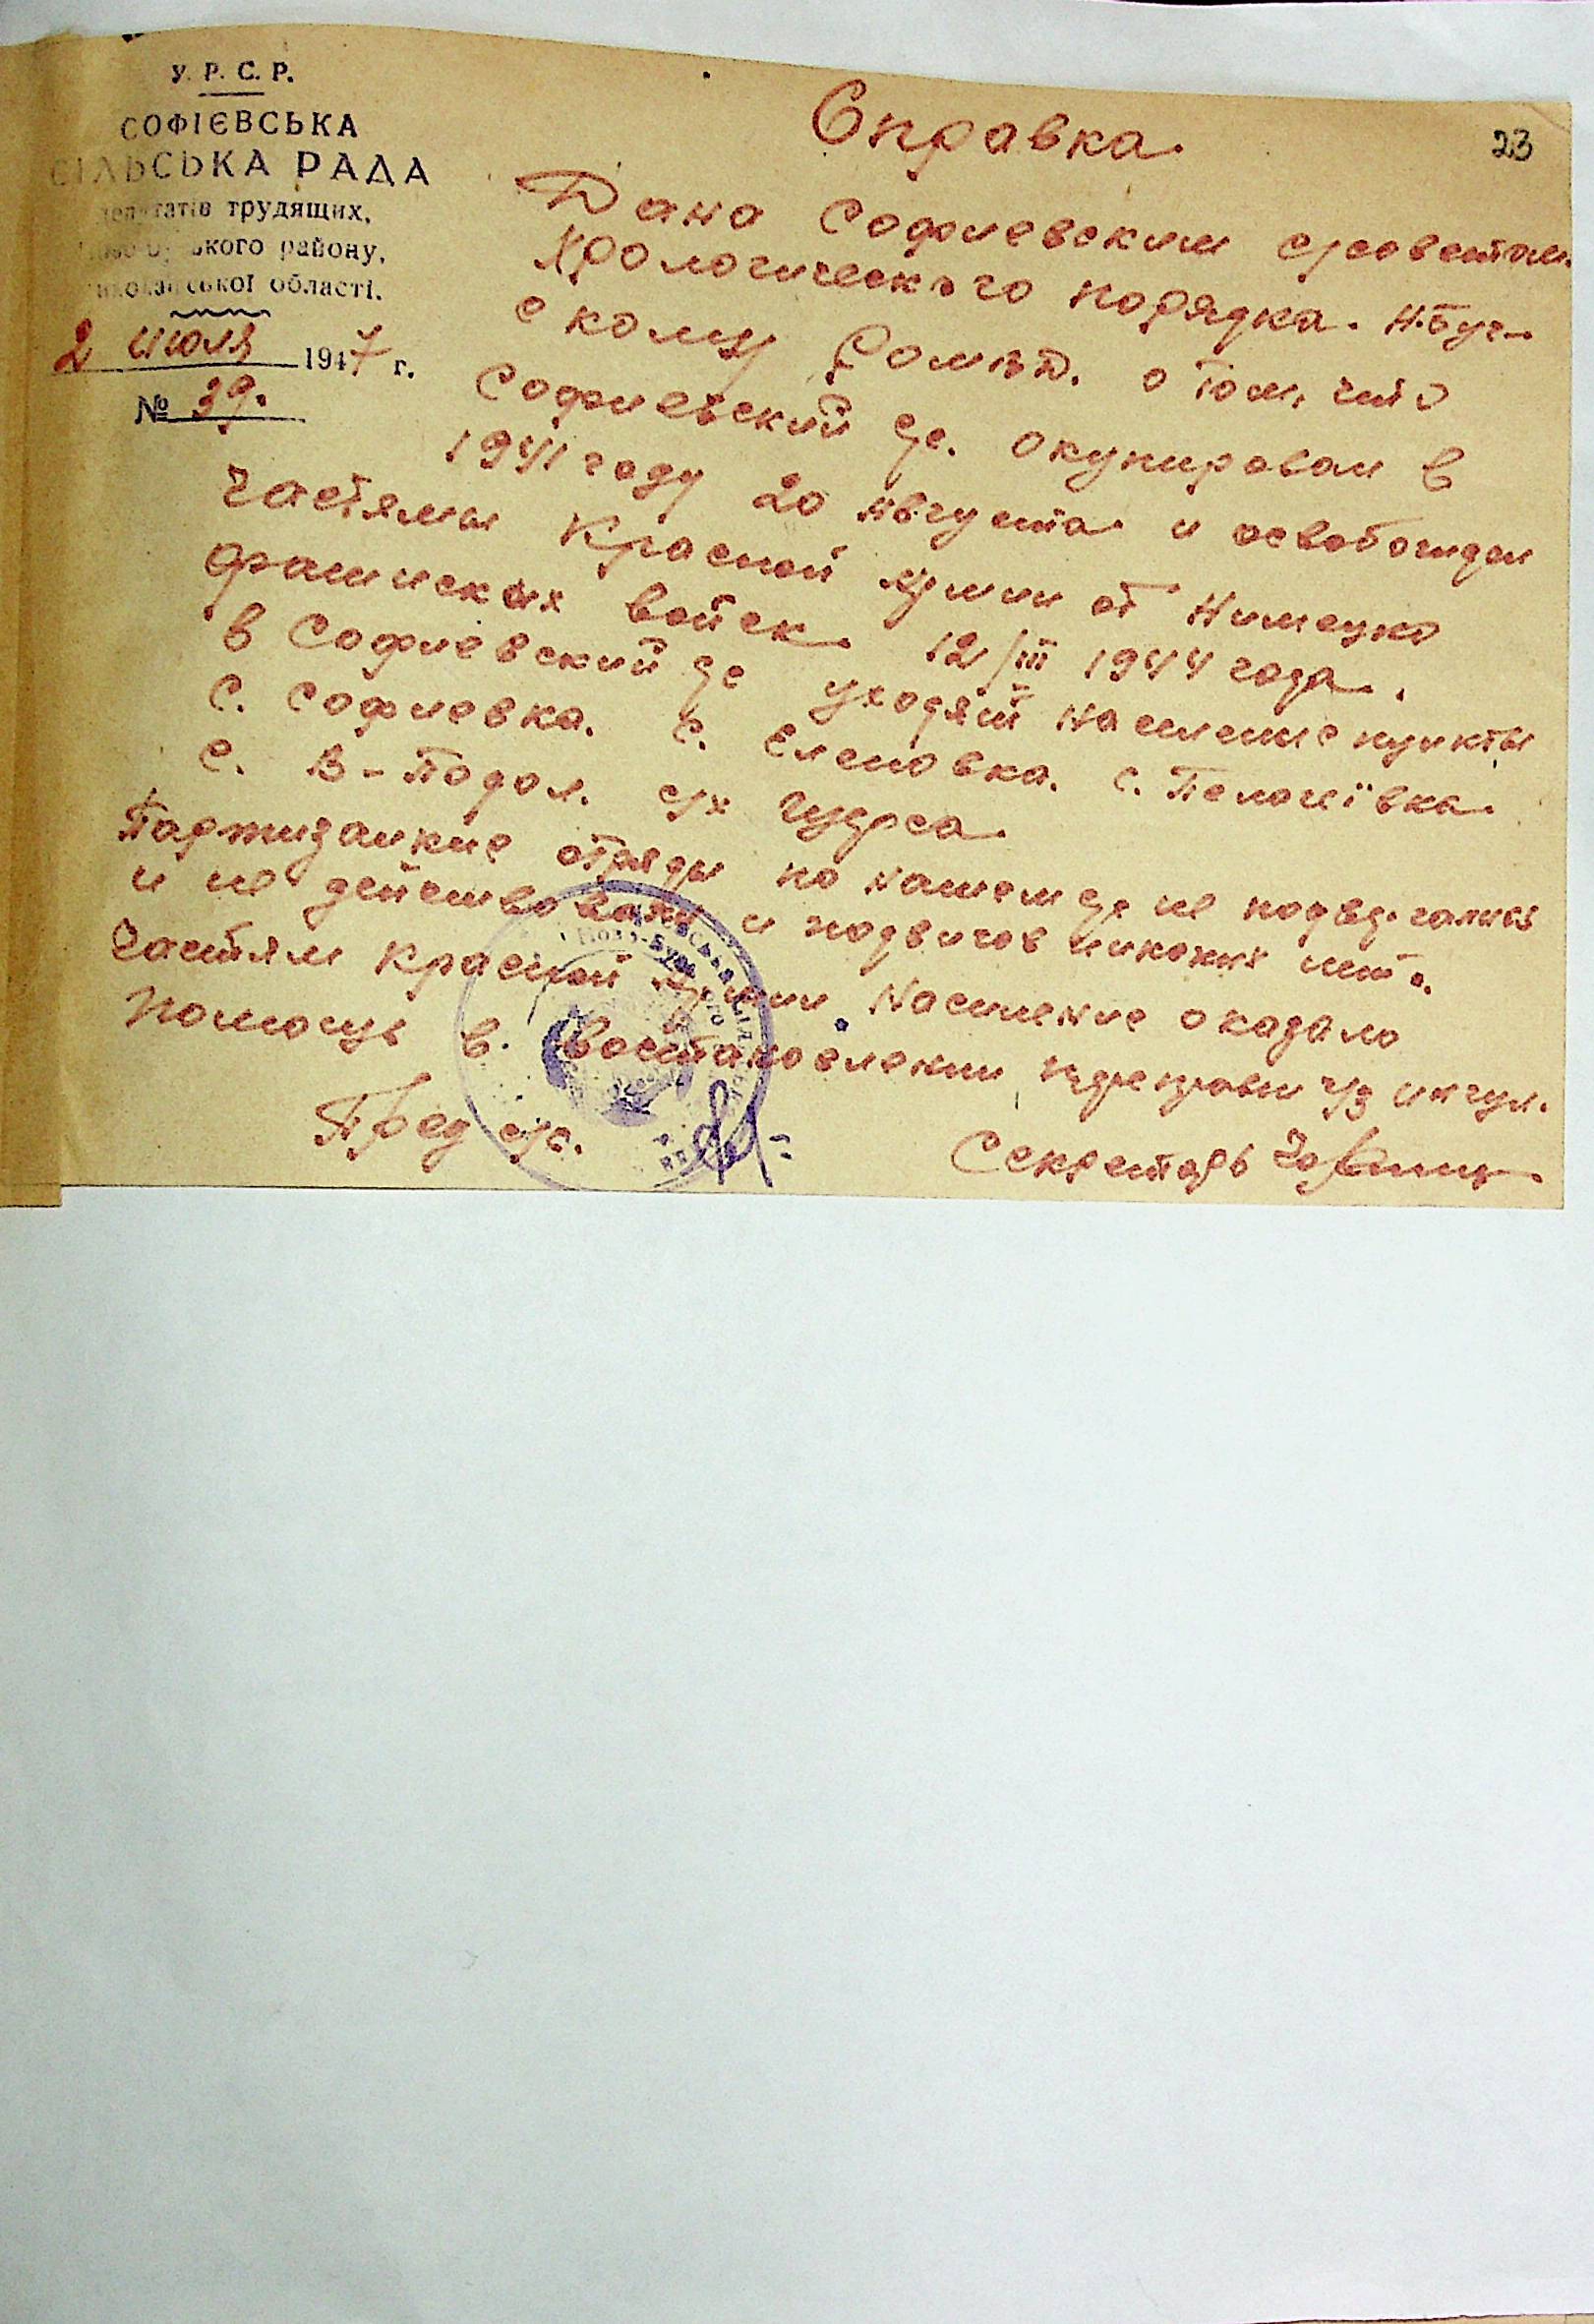 У. Р. С. Р.
СОФІЄВСЬКА
СІЛЬСЬКА РАДА
депутатів трудящих,
ського району,
ської області.
2 июля 1947 г.
№ 39.
23
Справка
Дана Софиевским с/советом
хрологического порядка. Н-Буг-
скому Ромвд. о том, что
Софиевский с/с. окупирован в
1941 году 20 августа и освобожден
частямы Красной Армии от Нимецко
фашиских войск 12/III 1944 года.
в Софиевский с/с уходят население пункты
С. Софиевка. С. Еленовка. С. Пелагеївка.
С. В-Подол. с/х
Партизанкие отряды по нашем с/с не подвергались
и не действовали и подвигов никоких нет.
Частям Красной Армии Население оказало
помощь в. востановлении переправы ч/з ингул.
Пред с/с.
Секретарь